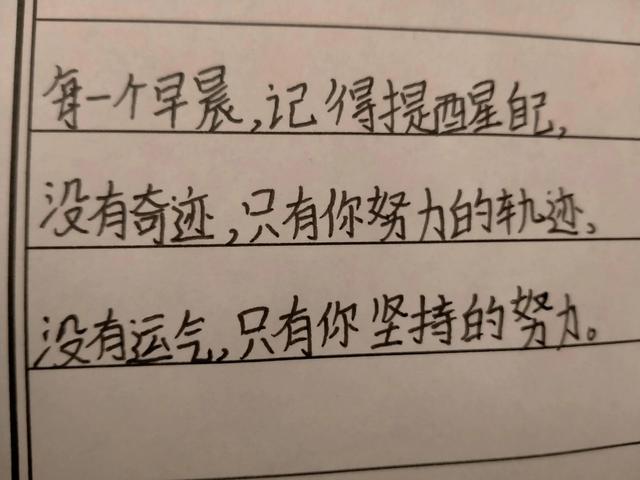 每一个早晨,记得提醒自己,
没有奇迹,只有你努力的轨迹、
没有运气,只有你坚持的努力。